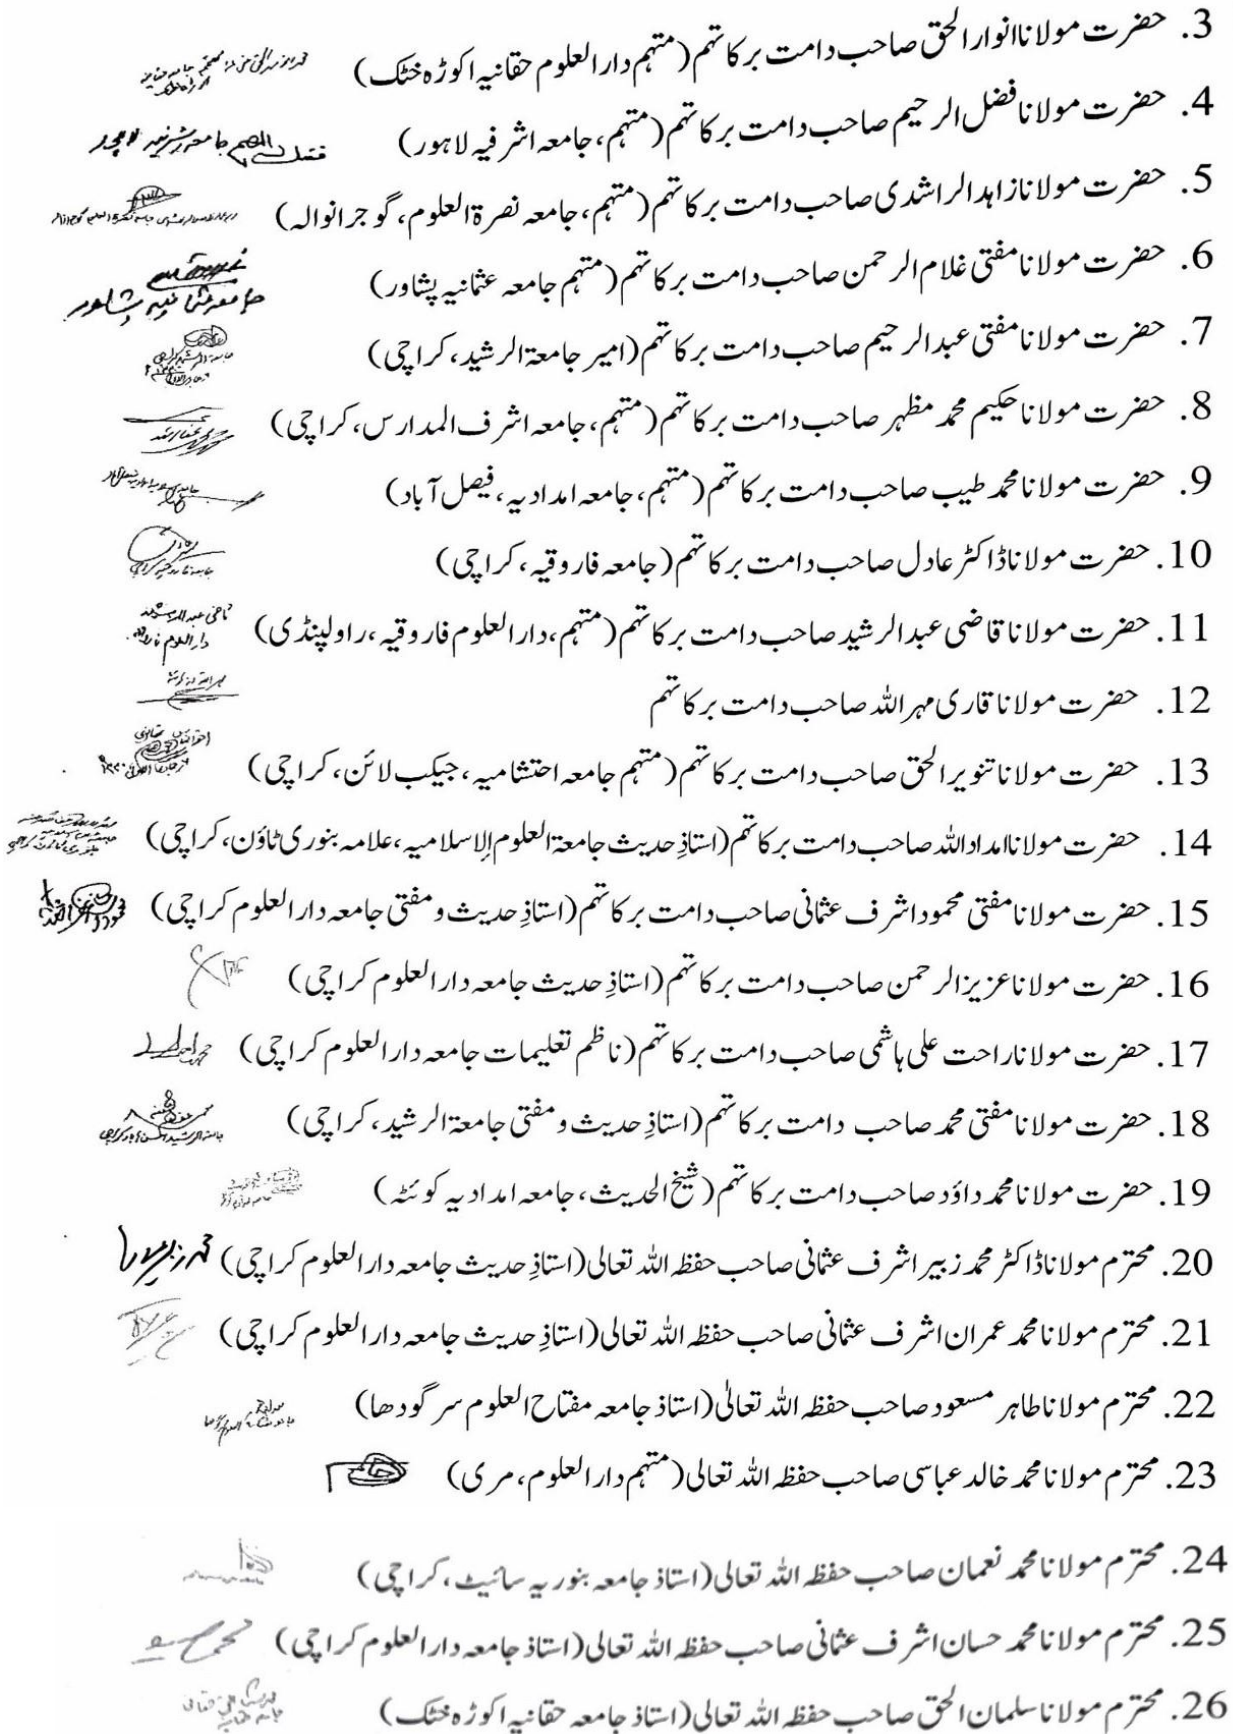 3. حضرت مولانا انوار الحق صاحب دامت برکاتہم (مہتمم دارالعلوم حقانیہ اکوڑہ خٹک)
4. حضرت مولانا فضل الرحیم صاحب دامت برکاتہم (مہتمم، جامعہ اشرفیہ لاہور)
5. حضرت مولانا زاہد الراشدی صاحب دامت برکاتہم (مہتمم، جامعہ نصرۃ العلوم، گوجرانوالہ)
6. حضرت مولانا مفتی غلام الرحمن صاحب دامت برکاتہم (مہتمم جامعہ عثمانیہ پشاور)
7. حضرت مولانا مفتی عبدالرحیم صاحب دامت برکاتہم (امیر جامعۃ الرشید، کراچی)
8. حضرت مولانا حکیم محمد مظہر صاحب دامت برکاتہم (مہتمم، جامعہ اشرف المدارس، کراچی)
9. حضرت مولانا محمد طیب صاحب دامت برکاتہم (مہتمم، جامعہ امدادیہ، فیصل آباد)
10. حضرت مولانا ڈاکٹر عادل صاحب دامت برکاتہم (جامعہ فاروقیہ، کراچی)
11. حضرت مولانا قاضی عبدالرشید صاحب دامت برکاتہم (مہتمم، دارالعلوم فاروقیہ، راولپنڈی)
12. حضرت مولانا قاری مہر اللہ صاحب دامت برکاتہم
13. حضرت مولانا تنویر الحق صاحب دامت برکاتہم (مہتمم جامعہ احتشامیہ، جیکب لائن، کراچی)
14. حضرت مولانا امداد اللہ صاحب دامت برکاتہم (استاذِ حدیث جامعۃ العلوم الإسلامیہ، علامہ بنوری ٹاؤن، کراچی)
15. حضرت مولانا مفتی محمود اشرف عثمانی صاحب دامت برکاتہم (استاذِ حدیث و مفتی جامعہ دارالعلوم کراچی)
16. حضرت مولانا عزیز الرحمن صاحب دامت برکاتہم (استاذِ حدیث جامعہ دارالعلوم کراچی)
17. حضرت مولانا راحت علی ہاشمی صاحب دامت برکاتہم (ناظم تعلیمات جامعہ دارالعلوم کراچی)
18. حضرت مولانا مفتی محمد صاحب دامت برکاتہم (استاذِ حدیث و مفتی جامعۃ الرشید، کراچی)
19. حضرت مولانا محمد داؤد صاحب دامت برکاتہم (شیخ الحدیث، جامعہ امدادیہ کوئٹہ)
20. محترم مولانا ڈاکٹر محمد زبیر اشرف عثمانی صاحب حفظہ اللہ تعالی (استاذِ حدیث جامعہ دارالعلوم کراچی)
21. محترم مولانا محمد عمران اشرف عثمانی صاحب حفظہ اللہ تعالی (استاذِ حدیث جامعہ دارالعلوم کراچی)
22. محترم مولانا طاہر مسعود صاحب حفظہ اللہ تعالیٰ (استاذ جامعہ مفتاح العلوم سرگودھا)
23. محترم مولانا محمد خالد عباسی صاحب حفظہ اللہ تعالی (مہتمم دارالعلوم، مری)
24. محترم مولانا محمد نعمان صاحب حفظہ اللہ تعالی (استاذ جامعہ بنوریہ سائیٹ، کراچی)
25. محترم مولانا محمد حسان اشرف عثمانی صاحب حفظہ اللہ تعالی (استاذ جامعہ دارالعلوم کراچی)
26. محترم مولانا سلمان الحق صاحب حفظہ اللہ تعالی (استاذ جامعہ حقانیہ اکوڑہ خٹک)